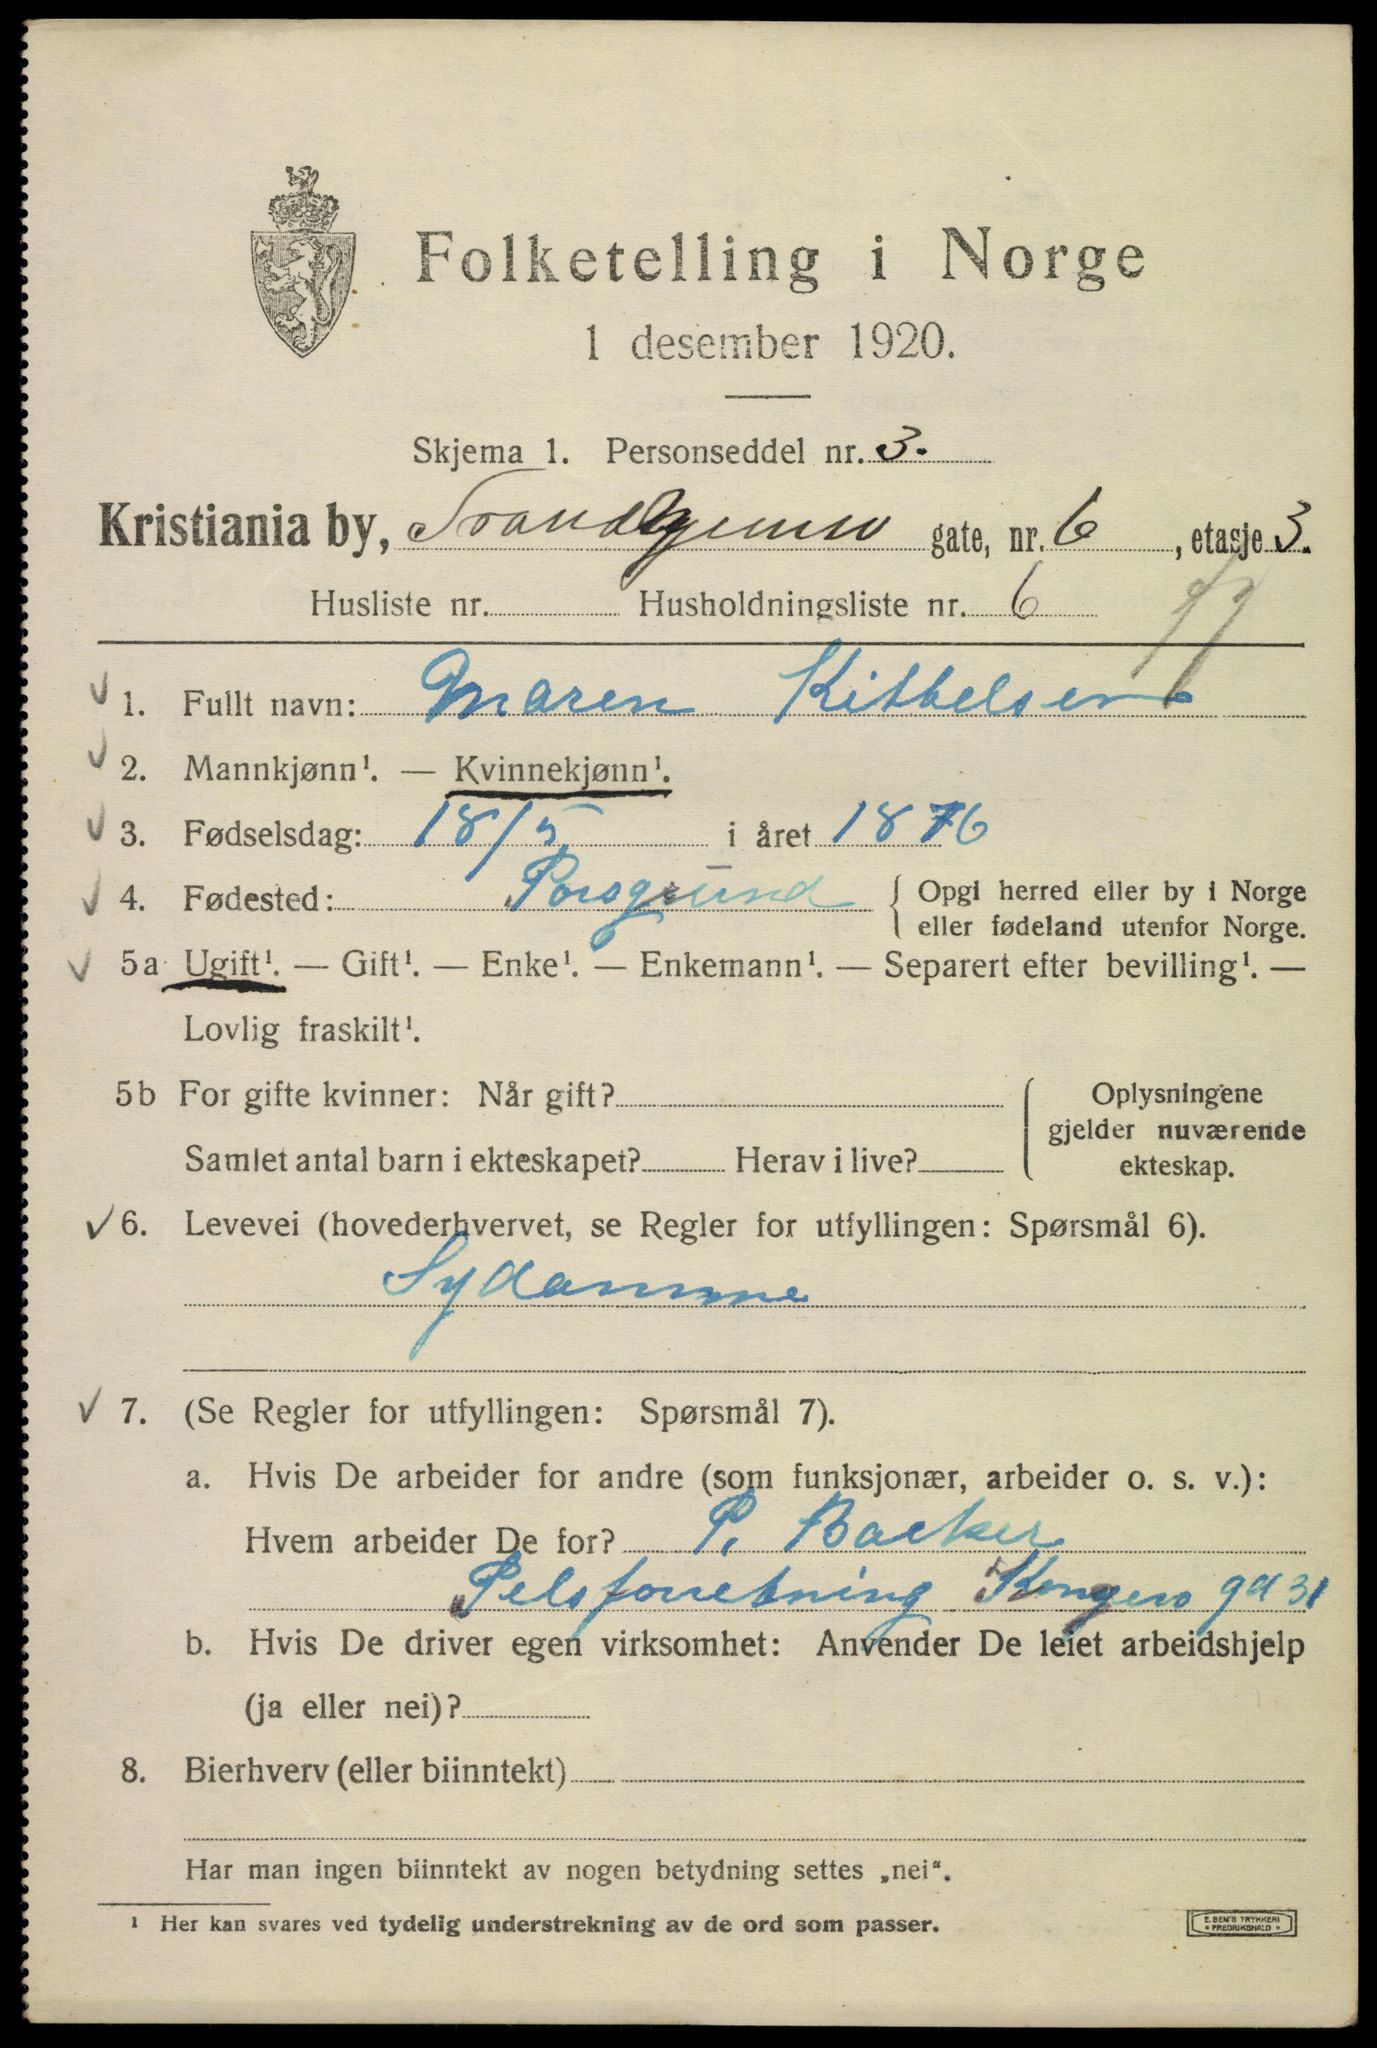 Folketelling i Norge
1 desember 1920.
Skjema 1. Personseddel nr. 3.
Kristiania by, gate, nr. 6, etasje 3.
Husliste nr. Husholdningsliste nr. 6
1. Fullt navn: Maren Kittelsen
2. Mannkjønn¹. — Kvinnekjønn¹.
3. Fødselsdag: 18/5 i året 1876
4. Fødested: Porsgrund { Opgi herred eller by i Norge
eller fødeland utenfor Norge.
5a Ugift¹. — Gift¹. — Enke¹. — Enkemann¹. — Separert efter bevilling¹. —
Lovlig fraskilt¹.
5b For gifte kvinner: Når gift? { Oplysningene
gjelder nuværende
Samlet antal barn i ekteskapet? Herav i live? ekteskap.
6. Levevei (hovederhvervet, se Regler for utfyllingen: Spørsmål 6).
Sydamme
7. (Se Regler for utfyllingen: Spørsmål 7).
a. Hvis De arbeider for andre (som funksjonær, arbeider o. s. v.):
Hvem arbeider De for? P. Backer
Pelsforretning Kongens gd 31
b. Hvis De driver egen virksomhet: Anvender De leiet arbeidshjelp
(ja eller nei)?
8. Bierhverv (eller biinntekt)
Har man ingen biinntekt av nogen betydning settes „nei“.
¹ Her kan svares ved tydelig understrekning av de ord som passer.
E. SEM'S TRYKKERI
• FREDRIKSHALD •